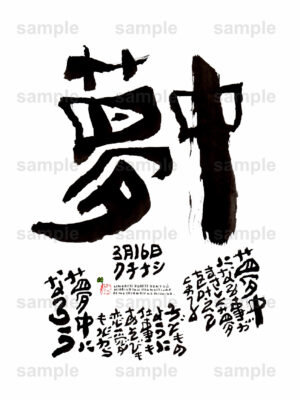 sample sample sample sample
sample sample sample sample
sample sample sample sample
sample sample sample sample
sample sample sample sample
sample sample sample sample
夢中
3月16日
クチナシ
夢中
になる事が
子どもの
ように
仕事も
あそびも
恋愛も
夢中に
なろう